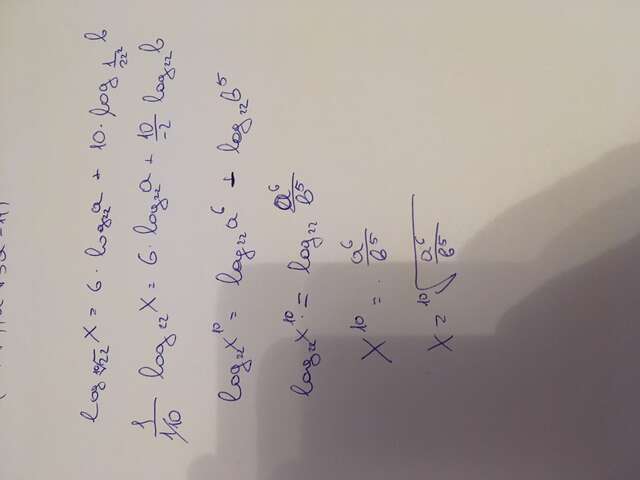 log_{\sqrt[10]{22}} X = 6 · log_{22} a + 10 · log_{\frac{1}{22^2}} b
\frac{1}{1/10} log_{22} X = 6 · log_{22} a + \frac{10}{-2} log_{22} b
log_{22} X^{10} = log_{22} a^6 - log_{22} b^5
log_{22} X^{10} = log_{22} \frac{a^6}{b^5}
X^{10} = \frac{a^6}{b^5}
X = \sqrt[10]{\frac{a^6}{b^5}}